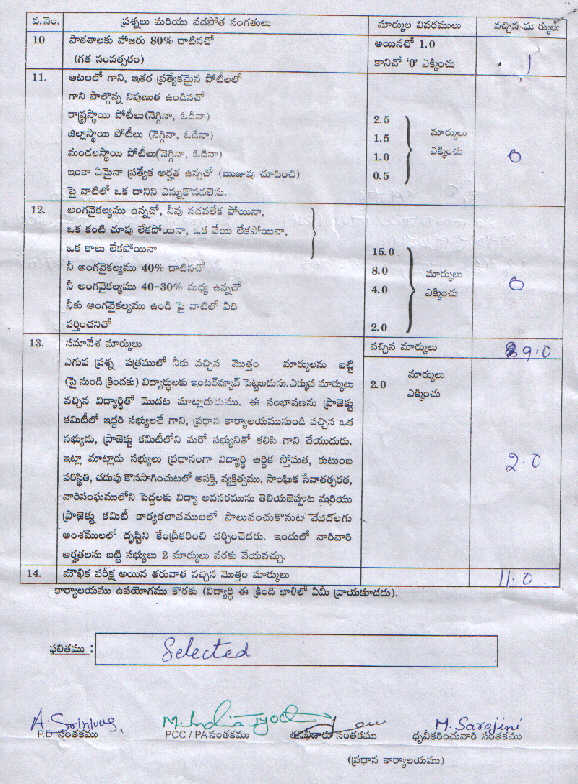 వ.నెం. ప్రశ్నలు మరియు వడపోత సంగతులు మార్కుల వివరములు వచ్చిన మార్కులు
10 పాఠశాలకు హాజరు 80% దాటినచో అయినచో 1.0
(గత సంవత్సరం) కానిచో '0' ఎక్కించు 1
11. ఆటలలో గాని, ఇతర ప్రత్యేకమైన పోటీలలో
గాని పాల్గొన్న నిపుణుత ఉండినచో
రాష్ట్రస్థాయి పోటీలు(నెగ్గినా, ఓడినా) 2.5
జిల్లాస్థాయి పోటీలు (నెగ్గినా, ఓడినా) 1.5 మార్కులు
మండలస్థాయి పోటీలు(నెగ్గినా, ఓడినా) 1.0 ఎక్కించు 0
ఇంకా ఏమైనా ప్రత్యేక అర్హత ఉన్నచో (ఋజువు చూపించి) 0.5
పై వాటిలో ఒక దానిని ఎన్నుకొనవలెను.
12. అంగవైకల్యము ఉన్నచో, నీవు నడవలేక పోయినా,
ఒక కంటి చూపు లేకపోయినా, ఒక చేయి లేకపోయినా,
ఒక కాలు లేకపోయినా 15.0
నీ అంగవైకల్యము 40% దాటినచో 8.0 మార్కులు
నీ అంగవైకల్యము 40-30% మధ్య ఉన్నచో 4.0 ఎక్కించు 0
నీకు అంగవైకల్యము ఉండి పై వాటిలో ఏది
వర్తించనిచో 2.0
13. సమావేశ మార్కులు వచ్చిన మార్కులు 9.0
ఎగువ ప్రశ్న పత్రములో నీకు వచ్చిన మొత్తం మార్కులను బట్టి 2.0 మార్కులు
(పై నుండి క్రిందకు) విద్యార్థులకు ఇంటర్వ్యూవ్ పెట్టబడును. ఎక్కువ మార్కులు ఎక్కించు
వచ్చిన విద్యార్థితో మొదట మాట్లాడుదుము. ఈ సంభాషణను ప్రాజెక్టు
కమిటీలో ఇద్దరి సభ్యులచే గాని, ప్రధాన కార్యాలయమునుండి వచ్చిన ఒక
సభ్యుడు, ప్రాజెక్టు కమిటీలోని మరో సభ్యునితో కలిసి గాని చేయుదురు.
ఇట్లా మాట్లాడు సభ్యులు ప్రధానంగా విద్యార్థి ఆర్థిక స్తోమత, కుటుంబ 2.0
పరిస్థితి, చదువు కొనసాగించుటలో ఆసక్తి, వ్యక్తిత్వము, సాంఘిక సేవాతత్పరత,
వారిసంఘములోని పెద్దలకు విద్యా అవసరమును తెలియజెప్పుట మరియు
ప్రాజెక్టు కమిటీ కార్యకలాపములలో పాలుపంచుకొనుట మొదలగు
అంశములలో దృష్టిని కేంద్రీకరించి చర్చించెదరు. ఇందులో వారివారి
అర్హతలను బట్టి సభ్యులు 2 మార్కులు వరకు వేయవచ్చు.
14. మౌఖిక పరీక్ష అయిన తరువాత వచ్చిన మొత్తం మార్కులు 11.0
కార్యాలయము ఉపయోగము కొరకు (విద్యార్థి ఈ క్రింది ఖాళీలో ఏమీ వ్రాయకూడదు).
ఫలితము : Selected
M. Sarojini
P.D సంతకము PCC / PA సంతకము సంతకము ధృవీకరించువారి సంతకము
(ప్రధాన కార్యాలయం)